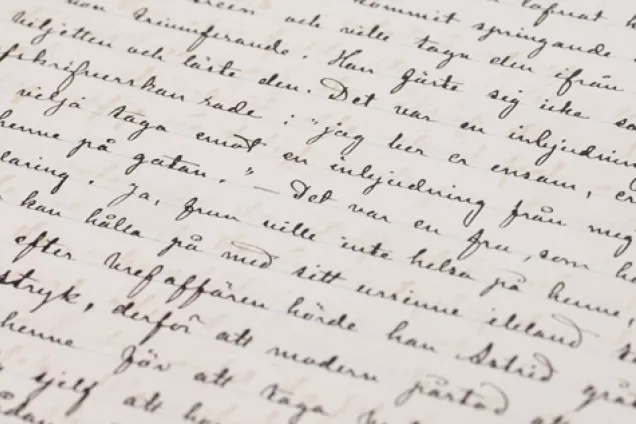 kommit springande
och ville taga den ifrån
triumferande. Han gjöste sig icke
biljetten och läste den. Det var en inbjudning
rade: "jag ber er ensam,
vilja taga emot en inbjudning från mig
henne på gatan." — Det var en fru, som
Ja, frun ville inte helsa på henne,
kan hålla på med sitt ursinne ibland
efter bref affären hörde han Astrid
stryk, derför att modern påstod
henne för att taga
sjelf att